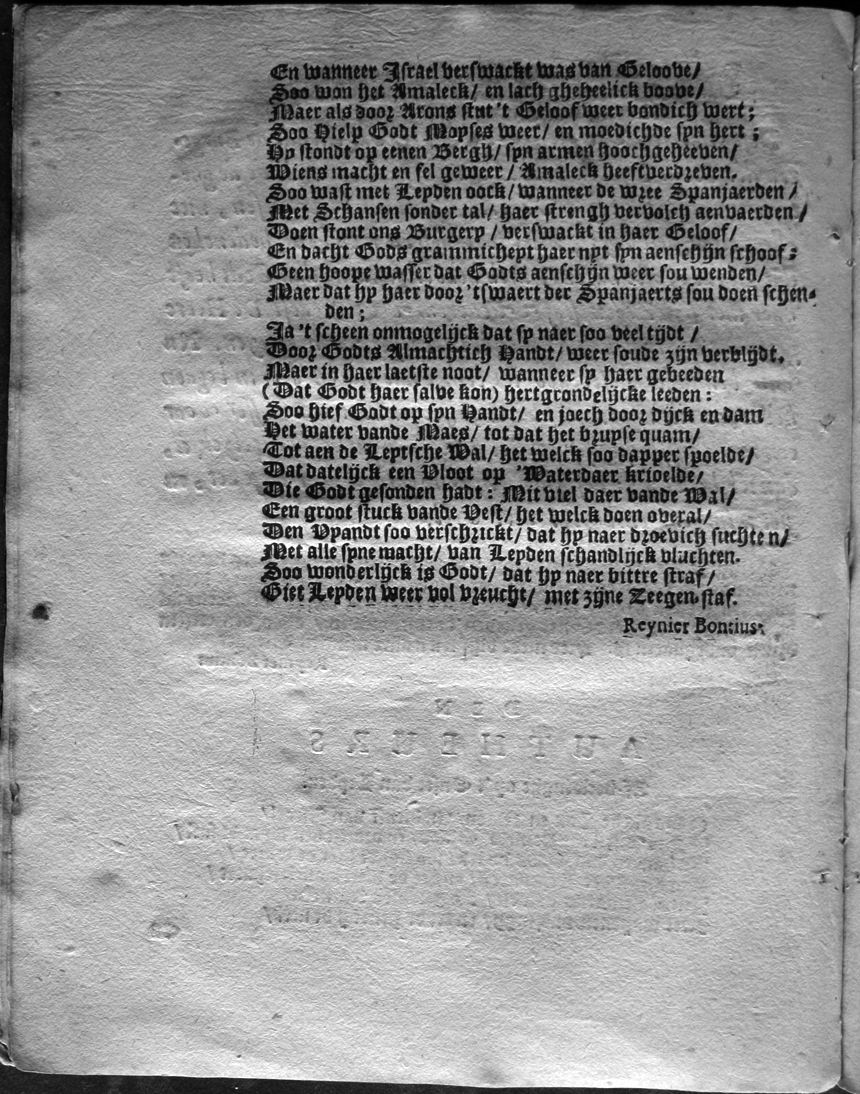 En wanneer Israel verswackt was van Geloove/
Soo won het Amaleck/ en lach gheheelick boove/
Maer als door Arons stut 't Geloof weer bondich wert;
Soo Hielp Godt Moyses weer/ en moedichde syn hert;
Hy stondt op eenen Bergh/ syn armen hoochgeheeven/
Wiens macht en fel geweer/ Amaleck heeft verdreven.
Soo wast met Leyden oock/ wanneer de wree Spanjaerden/
Met Schansen sonder tal/ haer strengh vervolch aenvaerden/
Doen stont ons Burgery/ verswackt in haer Geloof/
En dacht Gods grammicheyt haer nyt syn aenschijn schoof:
Geen hoope wasser dat Godts aenschijn weer sou wenden/
Maer dat hy haer door 'tswaert der Spanjaerts sou doen schen-
den;
Ja 't scheen onmogelijck dat sy naer soo veel tijdt/
Door Godts Almachtich Handt/ weer soude zijn verblijdt.
Maer in haer laetste noot/ wanneer sy haer gebeeden
(Dat Godt haer salve kon) hertgrondelijcke leeden:
Soo hief Godt op syn Handt/ en joech door dijck en dam
Het water vande Maes/ tot dat het bruyse quam/
Tot aen de Leytsche Wal/ het welck soo dapper spoelde/
Dat datelijck een Vloot op 'Waterdaer krioelde/
Die Godt gesonden hadt: Mit viel daer vande Wal/
Een groot stuck vande Vest/ het welck doen overal/
Den Vyandt soo verschrickt/ dat hy naer droevich suchten/
Met alle syne macht/ van Leyden schandlijck vluchten.
Soo wonderlijck is Godt/ dat hy naer bittre straf/
Giet Leyden weer vol vreucht/ met zijne Zeegen-staf.
Reynier Bontius.
DEN
AUTHEURS